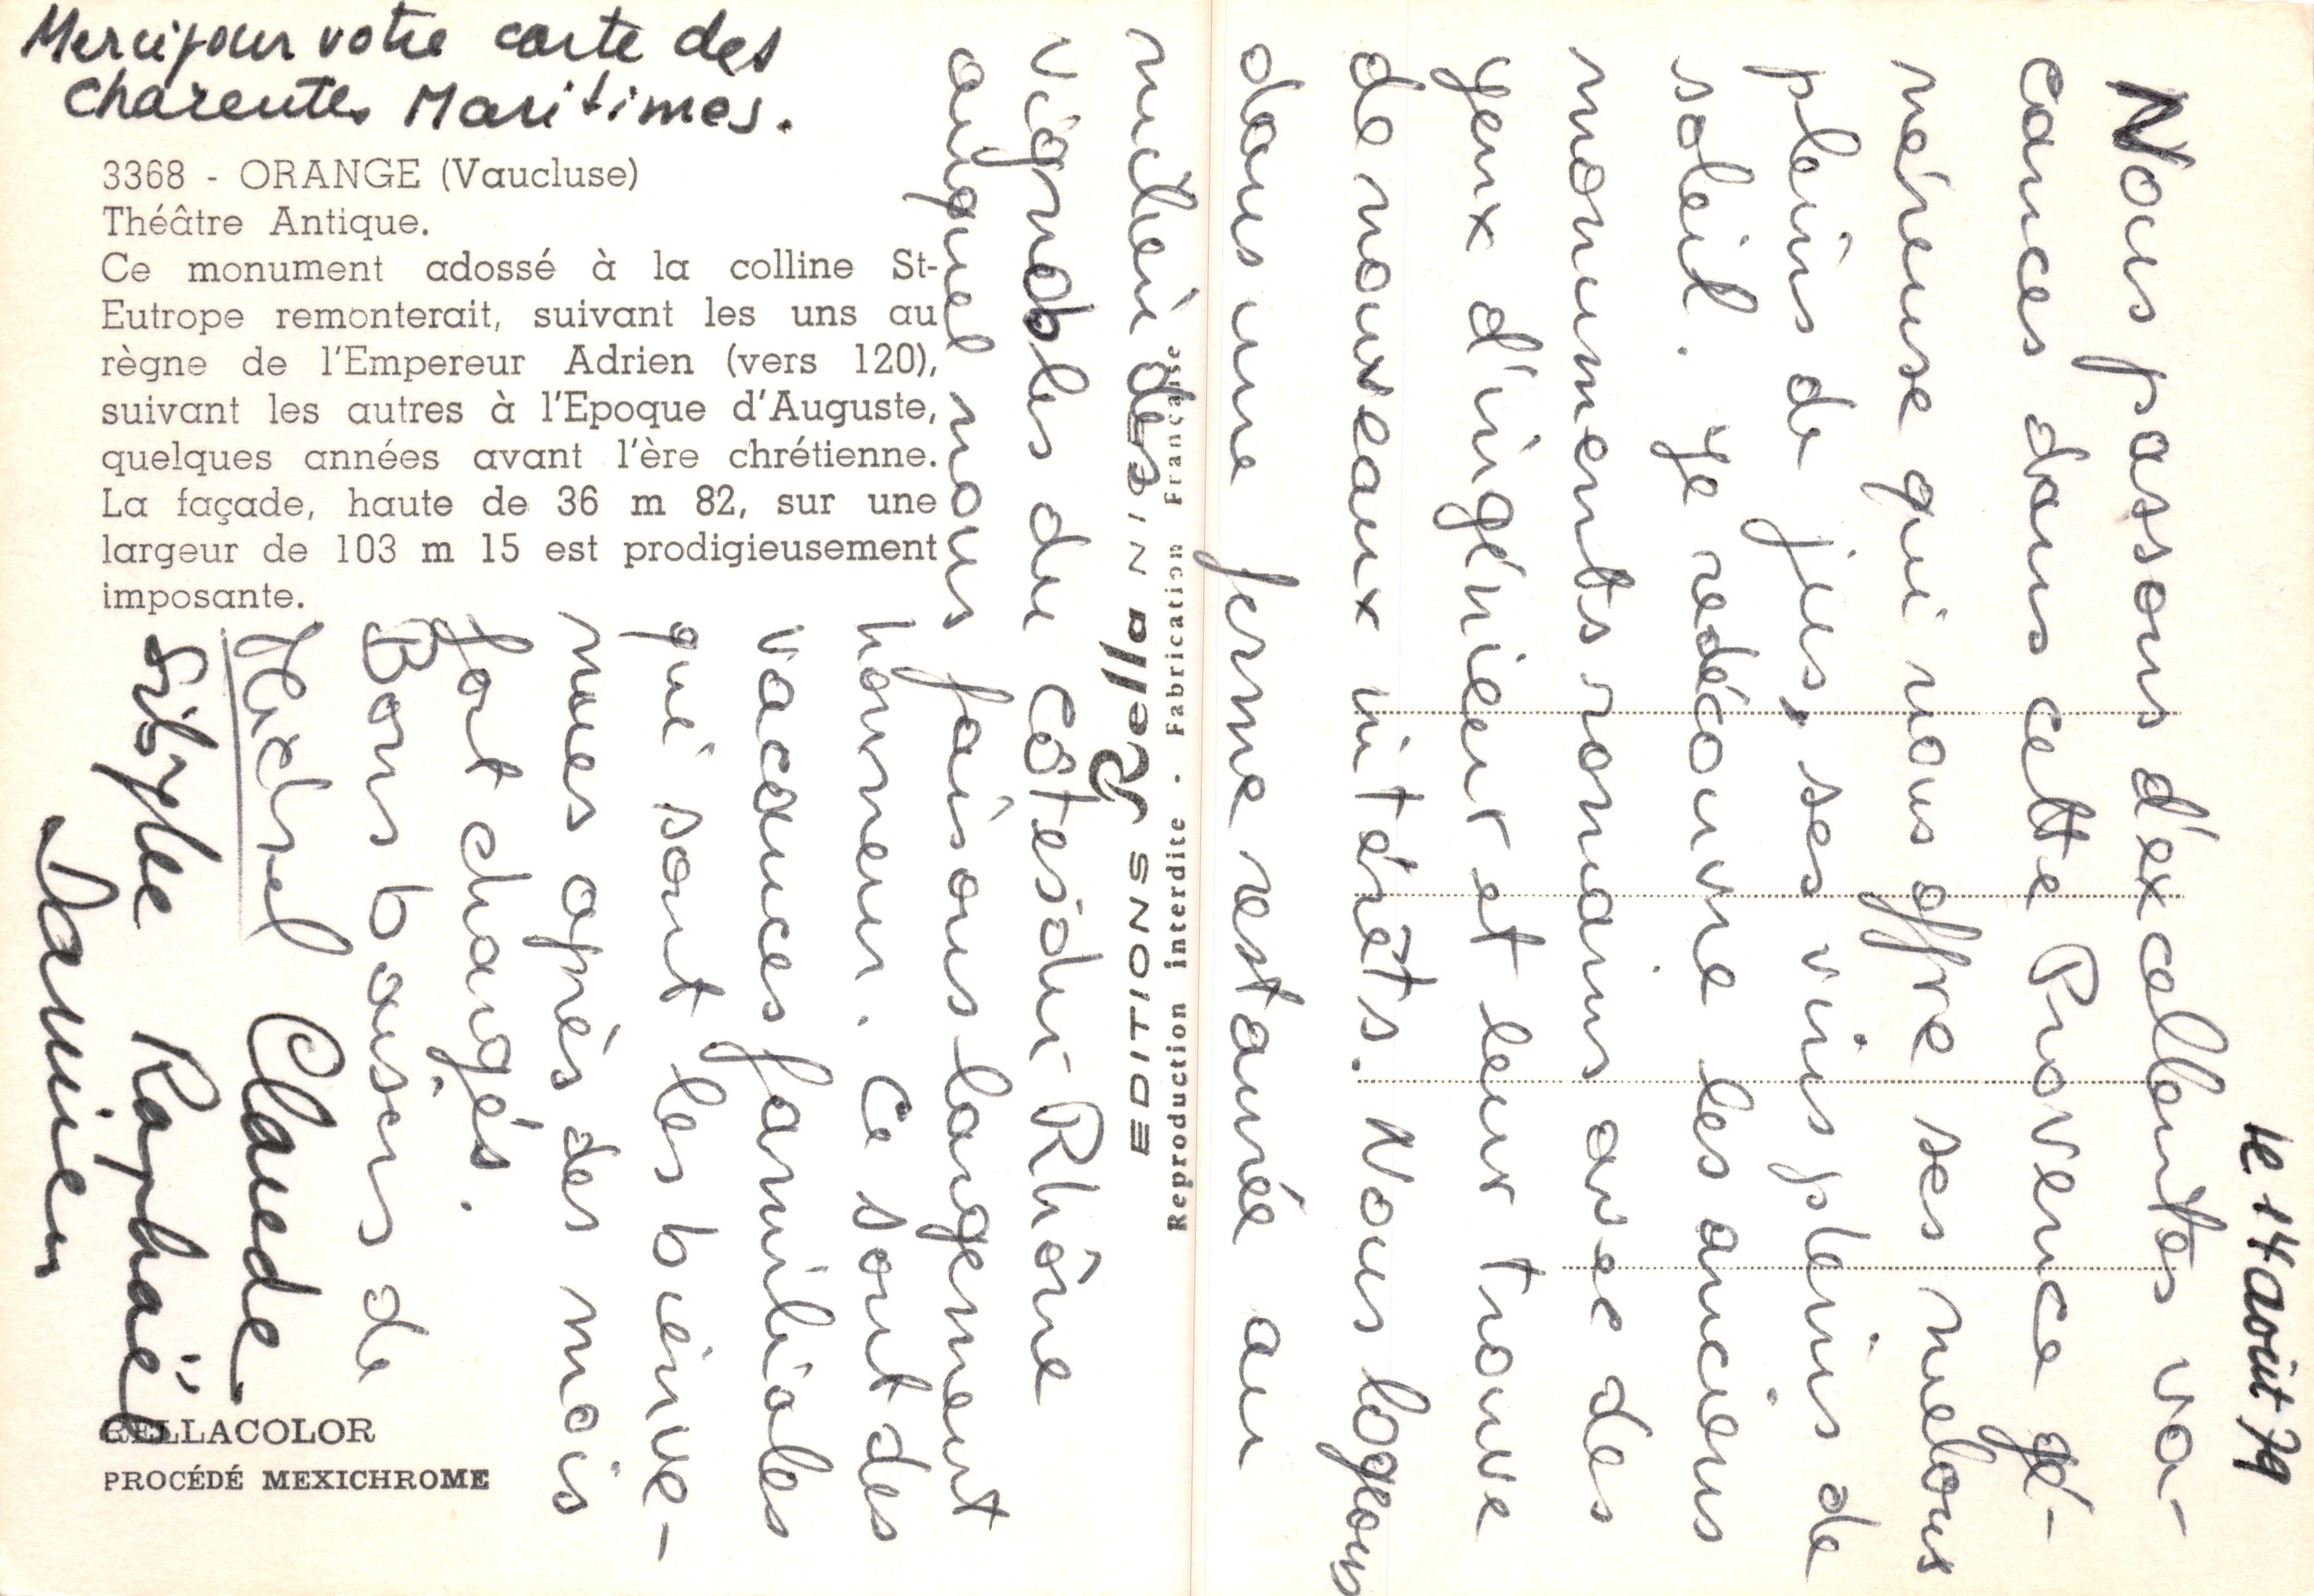 Merci pour votre carte des
Charentes Maritimes.
3368 - ORANGE (Vaucluse)
Théâtre Antique.
Ce monument adossé à la colline St-
Eutrope remonterait, suivant les uns au
règne de l'Empereur Adrien (vers 120),
suivant les autres à l'Epoque d'Auguste,
quelques années avant l'ère chrétienne.
La façade, haute de 36 m 82, sur une
largeur de 103 m 15 est prodigieusement
imposante.
le 14 août 79
Nous passons d'excellentes va-
cances dans cette Provence gé-
néreuse qui nous offre ses melons
pleins de jus, ses vins pleins de
soleil. Je redécouvre les anciens
monuments romains avec des
yeux d'ingénieur et leur trouve
de nouveaux intérêts. Nous logeons
dans une ferme restaurée au
milieu des
vignobles du Côtes du Rhône
auquel nous faisons largement
honneur. Ce sont des
vacances familiales
qui sont les bienve-
nues après des mois
fort chargés.
Bons baisers de
Michel Claude
Sibylle Raphaële
Damien
EDITIONS Rella NIN
Reproduction interdite - Fabrication Française
RELLACOLOR
PROCÉDÉ MEXICHROME